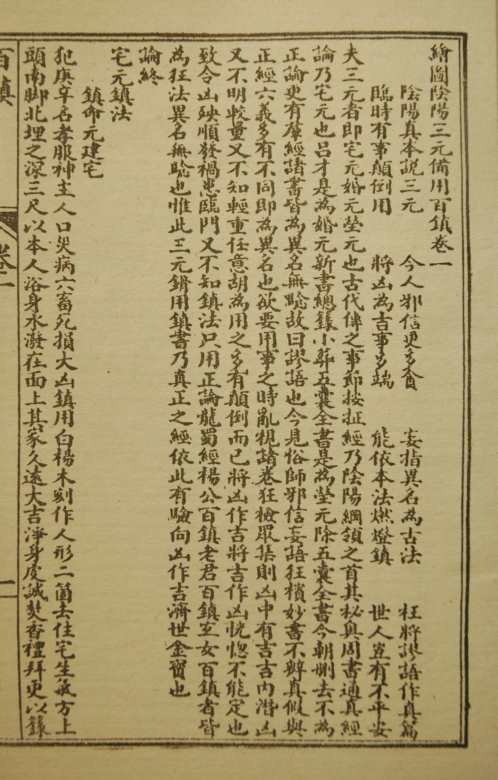 繪圖陰陽三元備用百鎮卷一
陰陽真本說三元 今人邪信更多貪 妄指異名為古法 枉將謬語作真篇
臨時有事顛倒用 將凶為吉事多端 能依本法燃燈鎮 世人豈有不平安
夫三元者即宅元婚元塋元也古代傳之事節按扯經乃陰陽綱領之首其秘奧周書通真經
論乃宅元也呂才是為婚元新書總錄小葬五囊全書是為塋元除五囊全書今朝刪去不為
正論更有羣經諸書皆為異名無驗故曰謬語也今見俗師邪信妄語狂積妙書不辨真假與
正經六義多有不同即為異名也欲要用事之時亂視諸卷狂檢眾集則凶中有吉吉內潛凶
又不明較量又不知輕重任意胡為用之多有顛倒而已將凶作吉將吉作凶恍惚不能定也
致合凶殃順發禍患臨門又不知鎮法只用正論龍蜀經楊公百鎮老君百鎮玄女百鎮者皆
為狂法異名無驗也惟此三元鎊用鎮書乃真正之經依此有驗向凶作吉濟世金寶也
論終
宅元鎮法
鎮命元建宅
犯庚年名孝服神主人口災病六畜死損大凶鎮用白楊木刻作人形二箇去住宅生氣方上
頭南脚北埋之深三尺以本人浴身水潑在面上其家久遠大吉淨身虔誠焚香禮拜更以籙
百鎮 卷一 一